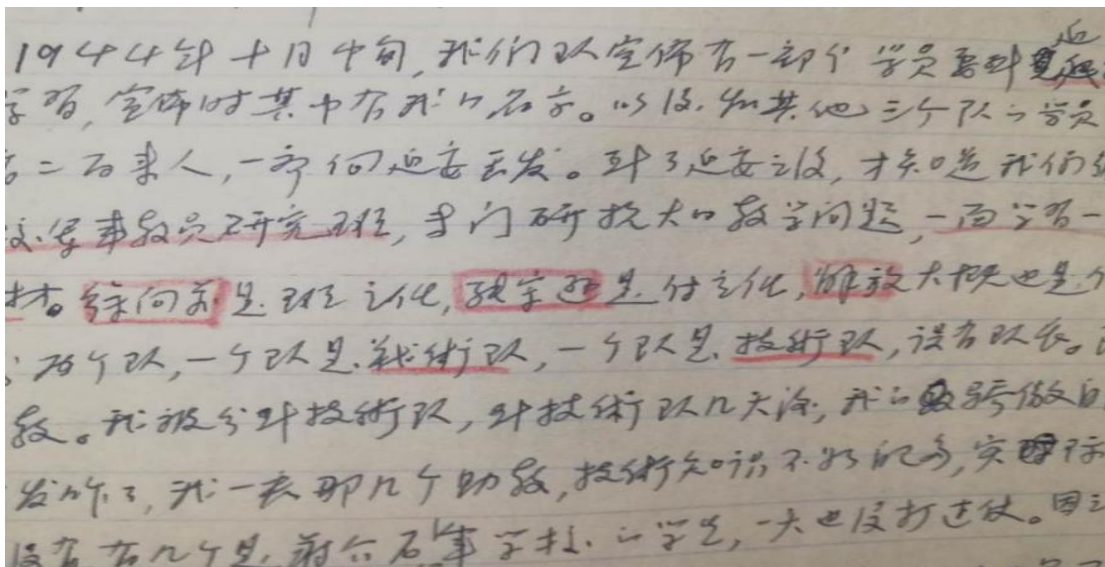 1944年十月中旬,我们队宣佈有一部个学员要到延
学习,宣佈时其中有我的名字。以后.和其他三个队的学员
二百来人,一齐向延安出发。到了延安之后,才知道我们
军事教员研究班,专门研抗大的教学问题,一面学习一
材。徐向前是班主任,张宗逊是付主任,解放大概也是
两个队,一个队是.战術队,一个队是.技術队,设有队长。
教。我被分到技術队,到技術队几天后,我的做
发作了,我一看那几个助教,技術知识不好的多,实际
没有有几个是.蒋介石军学校.的学生,一天也没打过仗。因